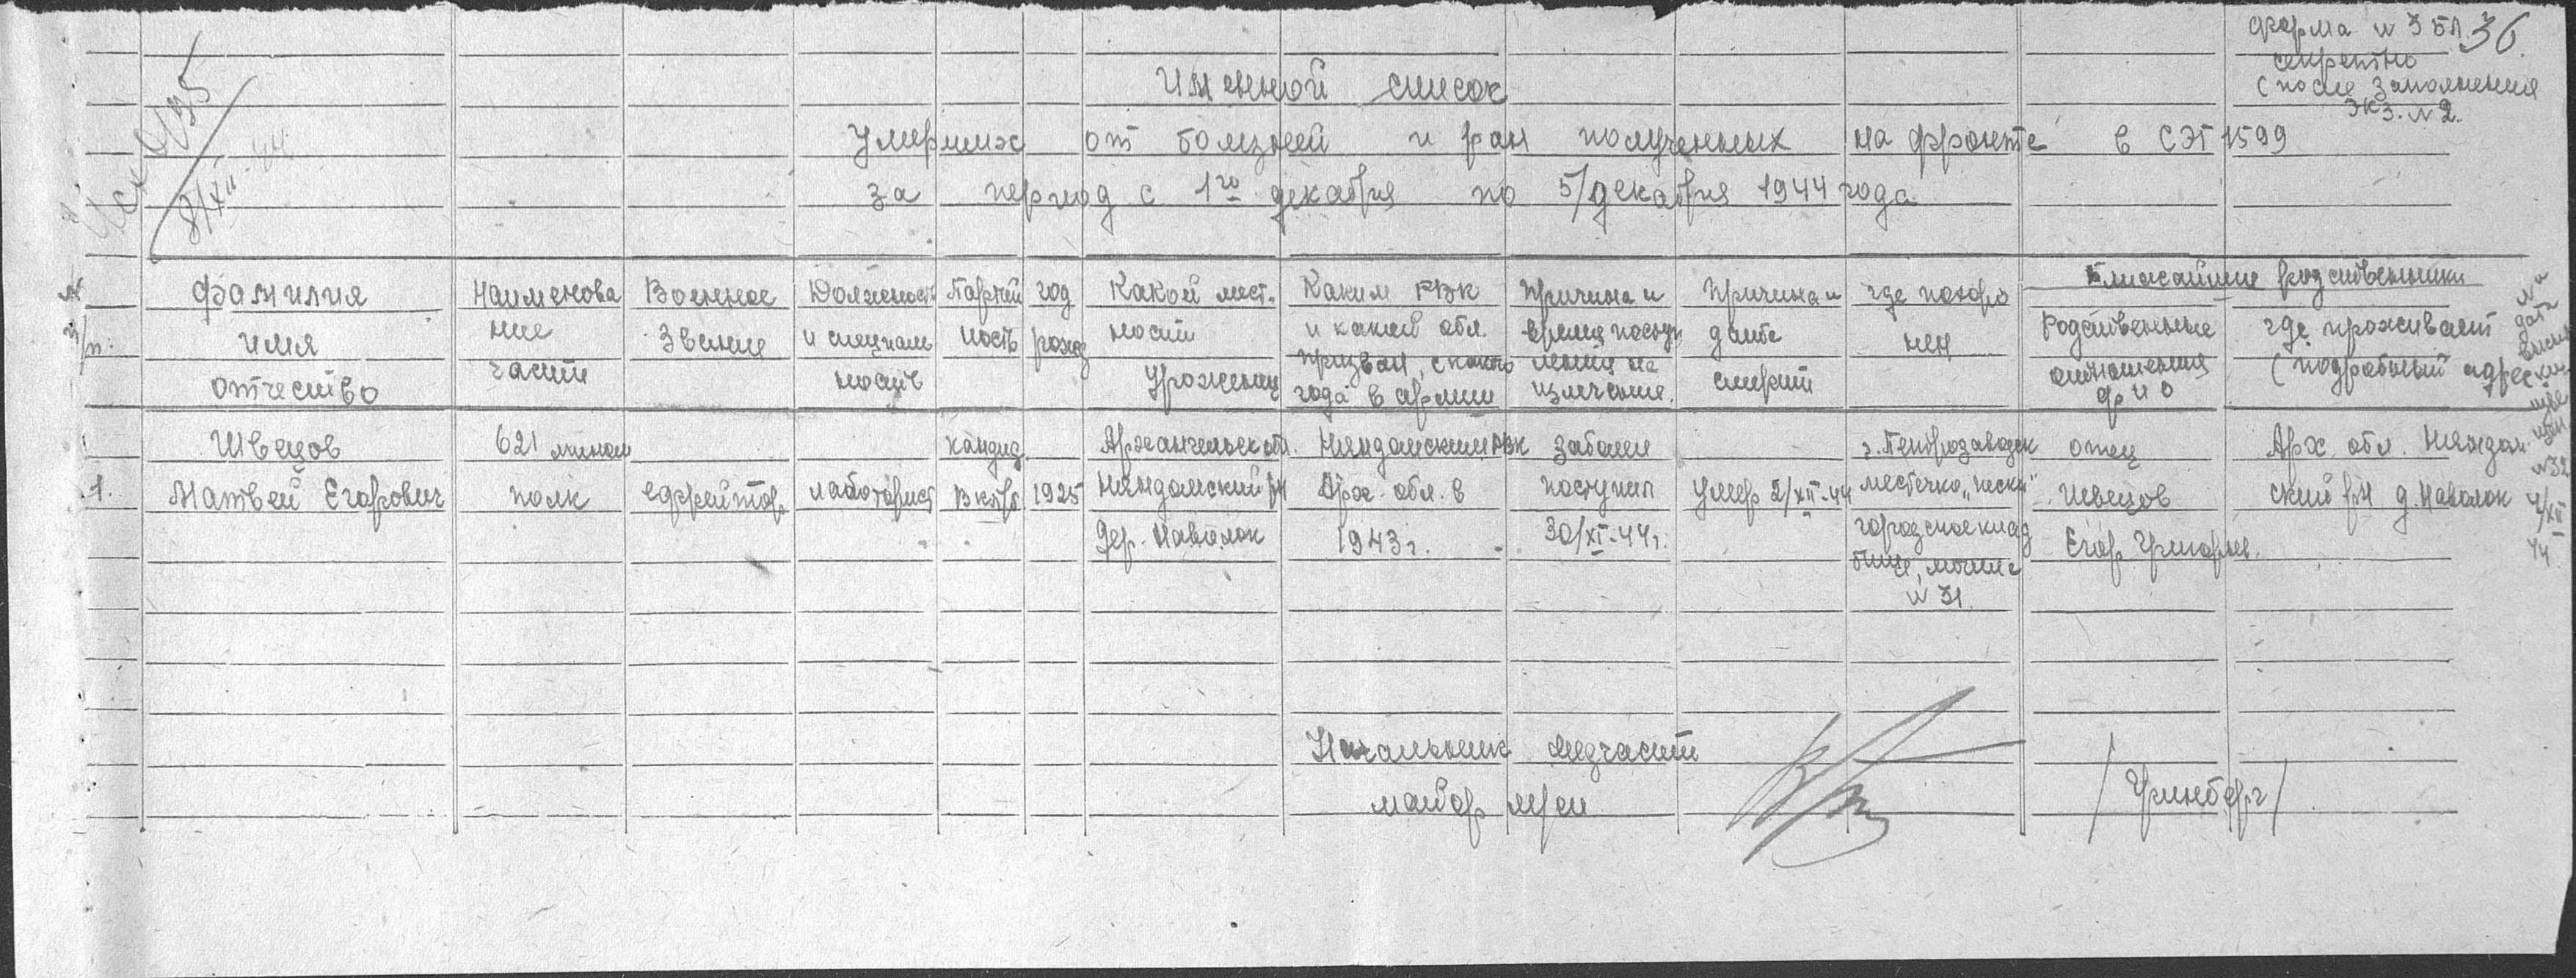 форма N 3 БЛ. 36.
секретно
(после заполнения
экз. N 2.
8/XII-44
Именной список
Умерших от болезней и ран полученных на фронте в СЭГ 1599
за период с 1го декабря по 5/декабря 1944 года
N
п/п.
Фамилия
имя
отчество
Наименова
ние
части
Военное
звание
Должность
и специаль
ность
Партий
ность
год
рожд
Какой мест-
ности
уроженец
Каким РВК
и какой обл.
призван, с какого
года в армии
Причина и
время поступ
ления на
излечение.
Причина и
дата
смерти
где похоро
нен
Ближайшие родственники
Родственные
отношения
ф и о
где проживает
(подробный адрес
N и
дата
1.
Швецов
Матвей Егорович
621 мином
полк
ефрейтор
лаботорист
кандид.
ВКП/б
1925
Архангельск обл.
Няндомский р-н
дер. Наволок
Няндомским РВК
Арх. обл. в
1943 г.
заболев
поступил
30/XI-44 г.
Умер 2/XII-44
г. Петрозаводск
местечко „пески"
городское клад
бище, могила
N 31.
отец
Швецов
Егор Григорьев.
Арх. обл. Няндом-
ский р-н д. Наволок
N 32
4/XII
44
Начальник медчасти
майор м/сл
/Гринберг/